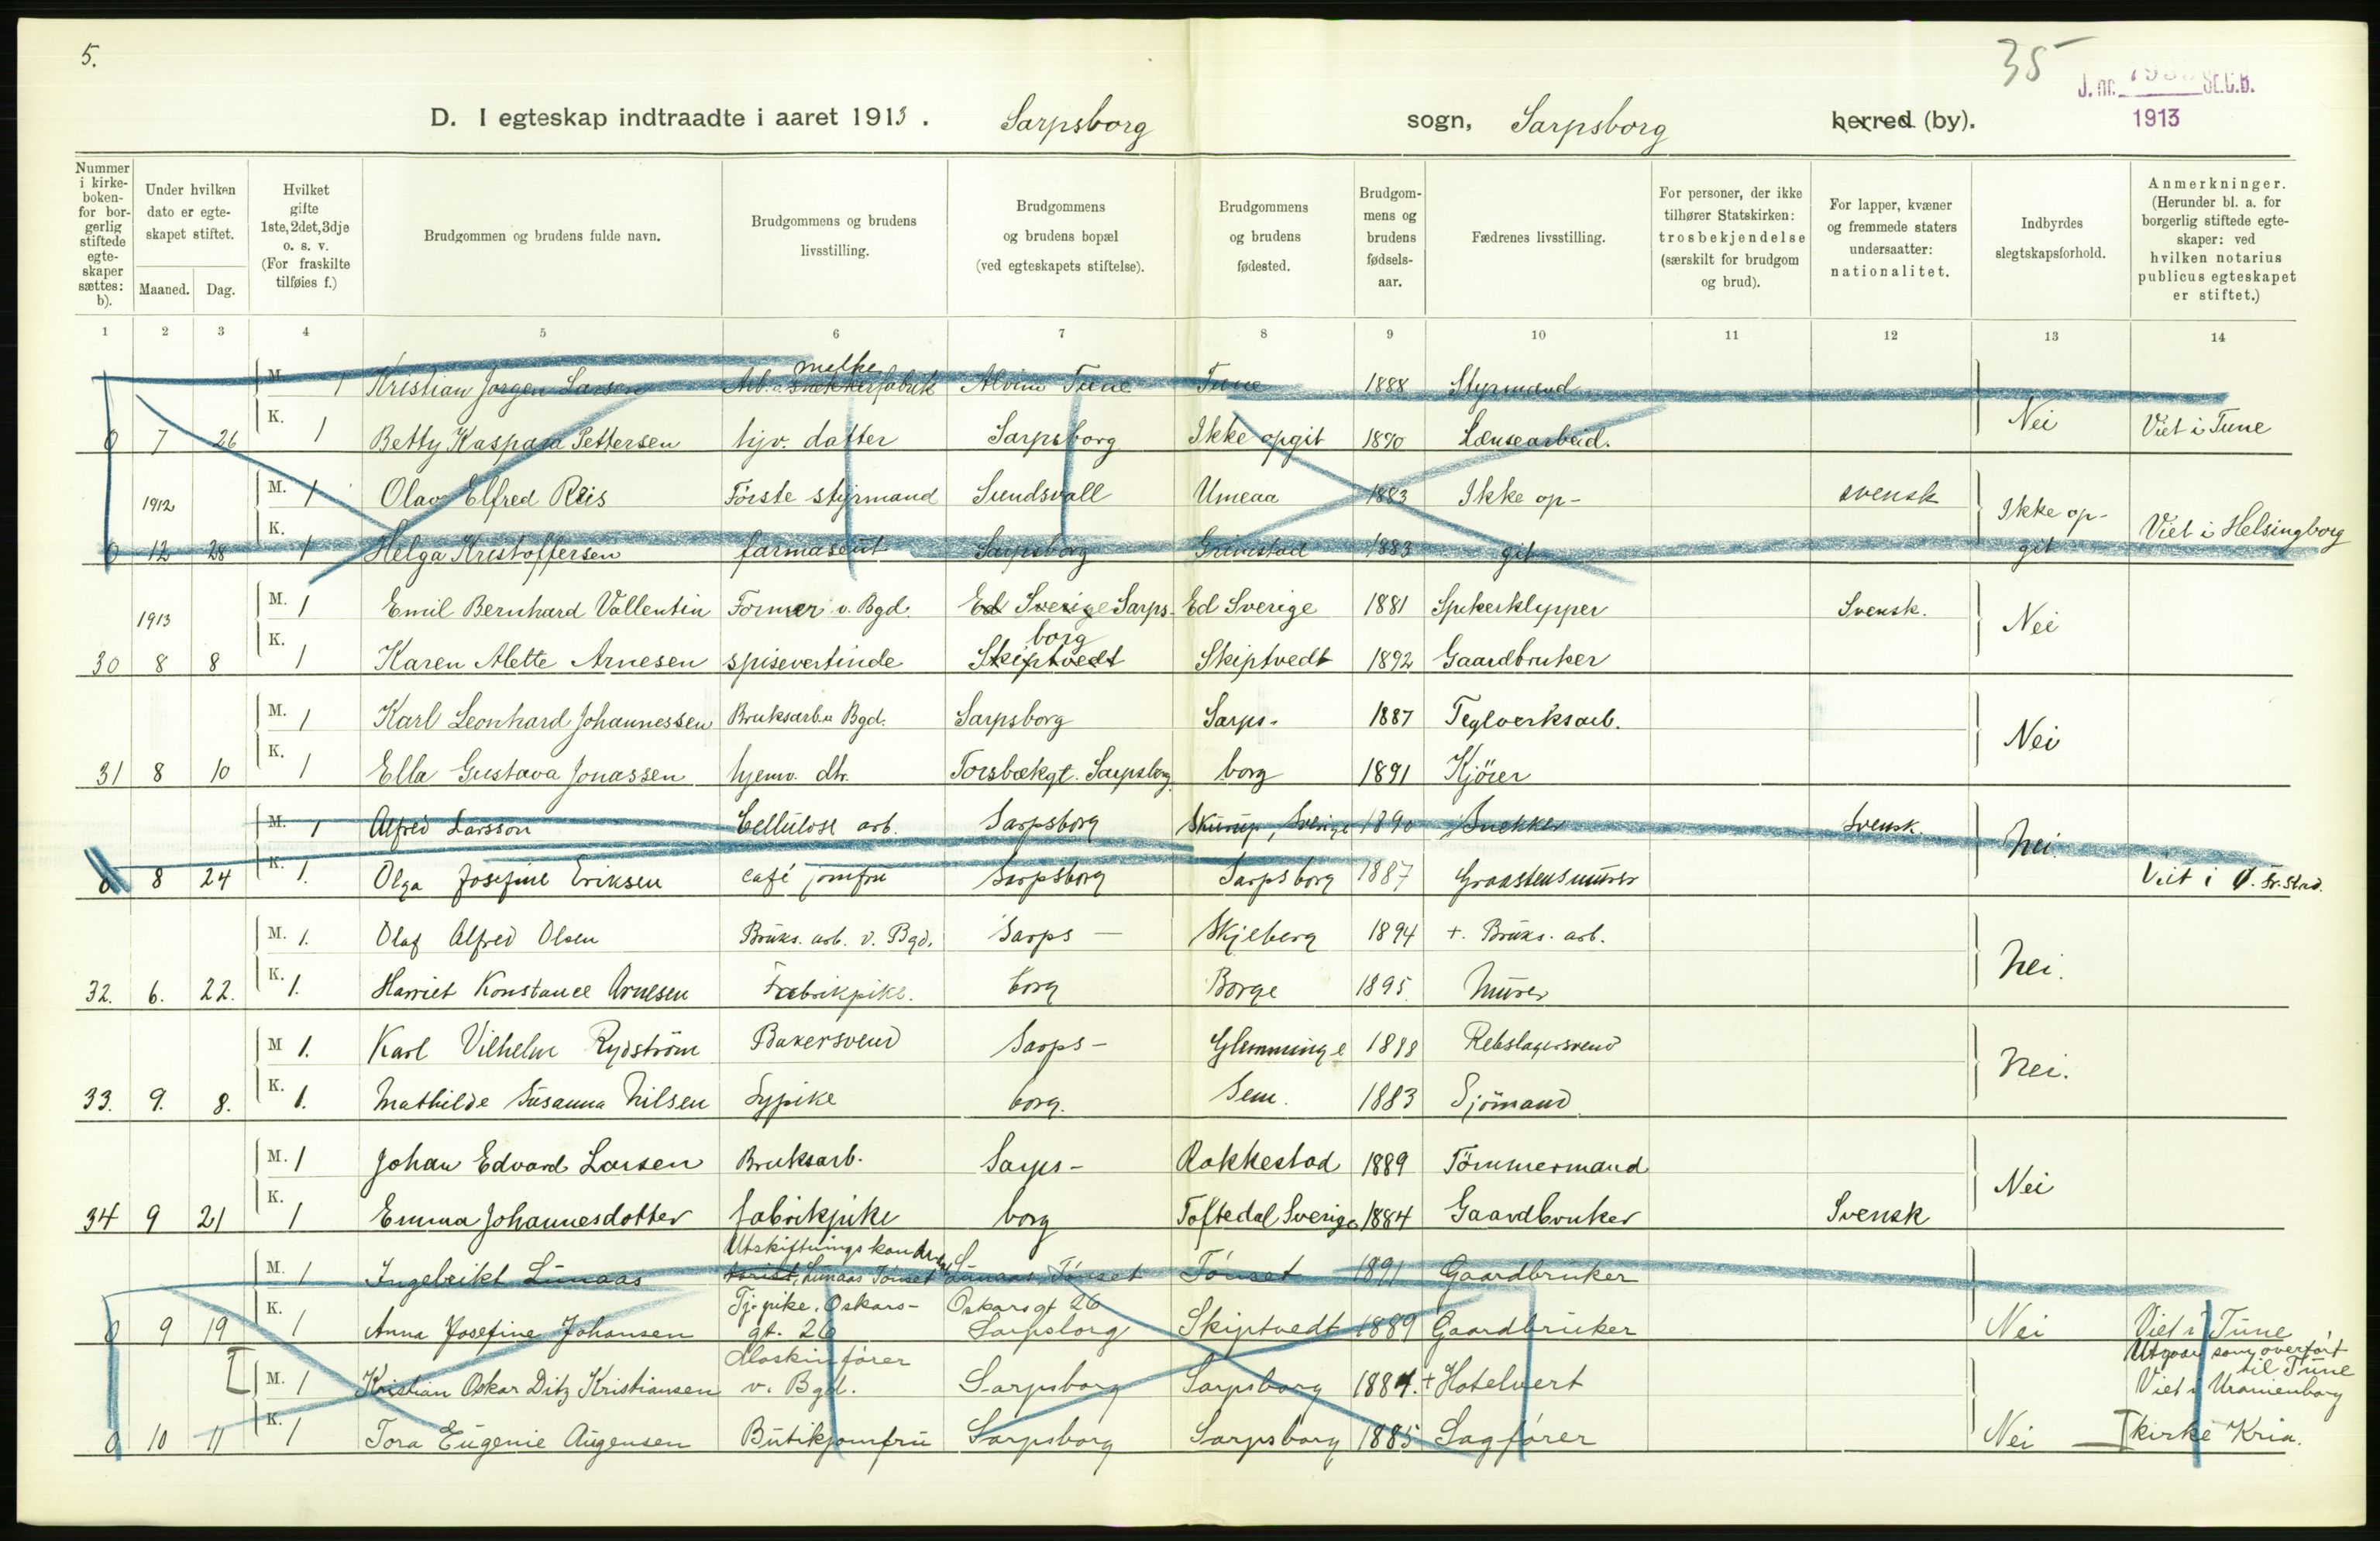 5.
35
J. nr. St.C.B.
1913
D. I egteskap indtraadte i aaret 1913. Sarpsborg sogn, Sarpsborg herred (by).
Nummer i kirkeboken- for borgerlig stiftede egteskaper sættes: b).
Under hvilken dato er egteskapet stiftet.
Maaned. Dag.
Hvilket gifte 1ste, 2det, 3dje o. s. v. (For fraskilte tilføies f.)
Brudgommen og brudens fulde navn.
Brudgommens og brudens livsstilling.
Brudgommens og brudens bopæl (ved egteskapets stiftelse).
Brudgommens og brudens fødested.
Brudgommens og brudens fødselsaar.
Fædrenes livsstilling.
For personer, der ikke tilhører Statskirken: trosbekjendelse (særskilt for brudgom og brud).
For lapper, kvæner og fremmede staters undersaatter: nationalitet.
Indbyrdes slegtskapsforhold.
Anmerkninger. (Herunder bl. a. for borgerlig stiftede egteskaper: ved hvilken notarius publicus egteskapet er stiftet.)
1 2 3 4 5 6 7 8 9 10 11 12 13 14
melke
M. 1 Kristian Jørgen Larsen Arb. v. snekkerfabrik Alvim Tune Tune 1888 Styrmand
0 7 26 K. 1 Betty Kaspara Pettersen hjv. datter Sarpsborg Ikke opgit 1890 Lænsearbeid. Nei Viet i Tune
1912 M. 1 Olav Elfred Reis Förste styrmand Sundsvall Umeaa 1883 Ikke op- svensk Ikke op-
0 12 28 K. 1 Helga Kristoffersen farmaseut Sarpsborg Grimstad 1883 git git Viet i Helsingborg
1913 M. 1 Emil Bernhard Vallentin Former v. Bgd. Ed Sverige Sarps- Ed Sverige 1881 Spikerklypper Svensk. Nei
borg
30 8 8 K. 1 Karen Alette Arnesen spisevertinde Skiptvedt Skiptvedt 1892 Gaardbruker
M. 1 Karl Leonhard Johannessen Bruksarb. v. Bgd. Sarpsborg Sarps- 1887 Teglverksarb. Nei
31 8 10 K. 1 Ella Gustava Jonassen hjemv. dtr. Torsbækgt. Sarpsborg borg 1891 Kjörer
M. 1 Alfred Larsson Cellulose arb. Sarpsborg Skurup, Sverige 1890 Snekker Svensk. Nei.
0 8 24 K. 1. Olga Josefine Eriksen café jomfru Sarpsborg Sarpsborg 1887 Graastensmurer Viet i Ø. Fr.stad.
M. 1. Olaf Alfred Olsen Bruks. arb. v. Bgd. Sarps — Skjeberg 1894 +. Bruks. arb. Nei.
32. 6. 22. K. 1. Harriet Konstance Arnesen Fabrikpike. borg Borge 1895. Murer
M 1. Karl Vilhelm Rydström Bakersvend Sarps- Glemminge 1888 Rebslagersvend Nei.
33. 9. 8. K. 1. Mathilde Susanna Nilsen Sypike borg. Sem. 1883 Sjömand
M. 1 Johan Edvard Larsen Bruksarb. Sarps- Rakkestad 1889 Tömmermand Nei
34 9 21 K. 1 Emma Johannesdotter fabrikpike borg Toftedal Sverige 1884 Gaardbruker Svensk
Utskiftningskandidat
M. 1 Ingebrikt Lunaas Lunaas Tönset Lunaas, Tönset Tönset 1891 Gaardbruker
Tj. pike. Oskars- Oskarsgt 26
0 9 19 K. 1 Anna Josefine Johansen gt. 26 Sarpsborg Skiptvedt 1889 Gaardbruker Nei Viet i Tune
Maskinfører Utgaar som overført
til Tune
M. 1 Kristian Oskar Ditz Kristiansen v. Bgd. Sarpsborg Sarpsborg 1884. + Hotelvert Viet i Uranienborg
0 10 11 K. 1 Tora Eugenie Augensen Butikjomfru Sarpsborg Sarpsborg 1885 Sagfører Nei kirke Kria.